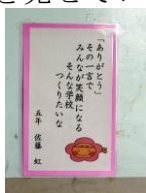 「ありがとう」
その一言で
みんなが笑顔になる
そんな学校
つくりたいな
五年 佐藤 虹